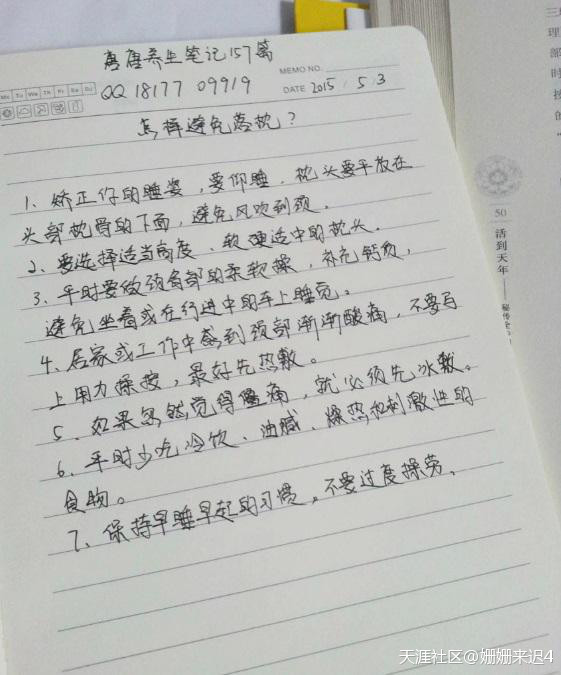 唐唐养生笔记157篇
Mo Tu We Th Fr Sa Su
MEMO NO.
QQ 18177 09919
DATE 2015 / 5 / 3
怎样避免落枕？
1、矫正你的睡姿，要仰睡、枕头要平放在
头部枕骨的下面，避免风吹到颈。
2、要选择适当高度、软硬适中的枕头。
3、平时要做颈肩部的柔软操，补充钙质，
避免坐着或在行进中的车上睡觉。
4、居家或工作中感到颈部渐渐酸痛，不要马
上用力揉按，最好先热敷。
5、如果突然觉得痛，就必须先冰敷。
6、平时少吃冷饮、油腻、燥热和刺激性的
食物。
7、保持早睡早起的习惯，不要过度操劳、
50
活到天年
天涯社区@姗姗来迟4